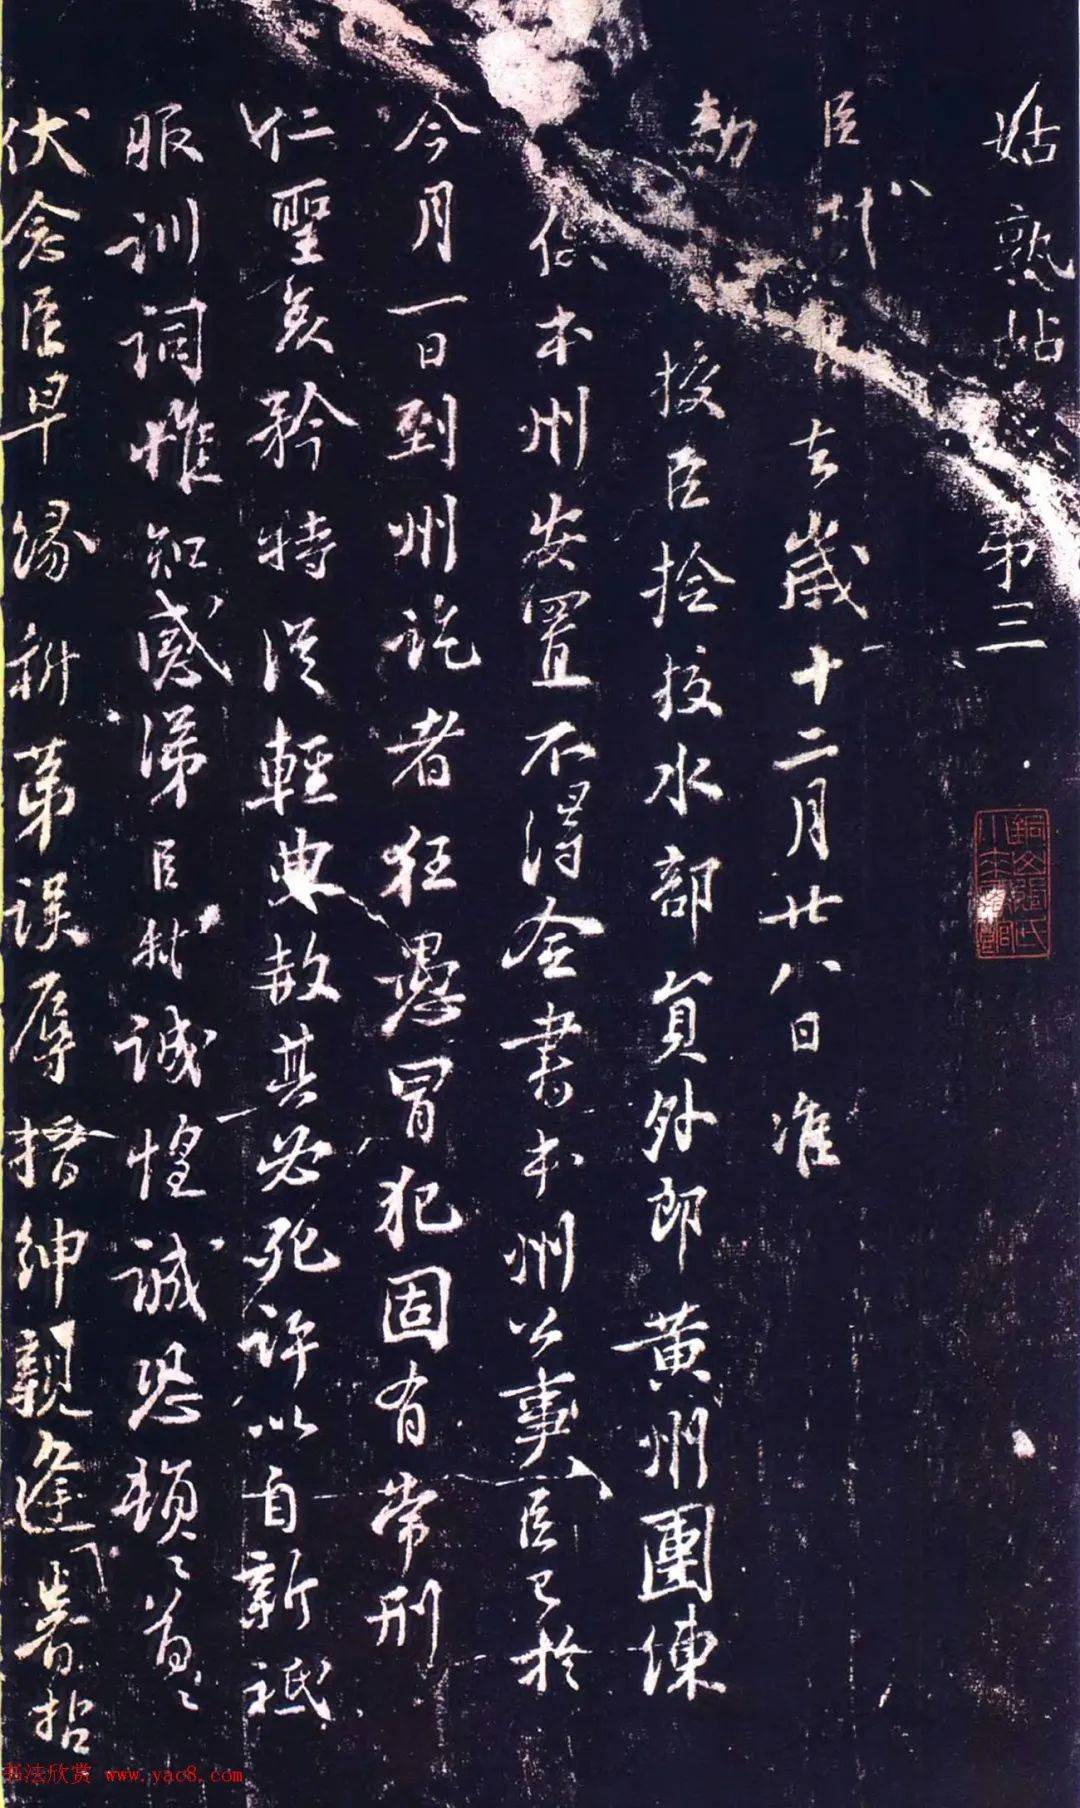 姑熟帖 第三
臣軾言去歲十二月廿八日准
勑
授臣撿挍水部員外郎黄州團練
使本州安置不得佥書本州公事臣已於
今月一日到州訖者狂愚冒犯固有常刑
仁聖矜特從輕典赦其必死許以自新祗
服訓詞惟知感涕臣軾誠惶誠恐頓〻首〻
伏念臣早緣科第誤辱搢紳親逢睿拈
铜山張氏小来禽館
书法欣赏 www.yac8.com